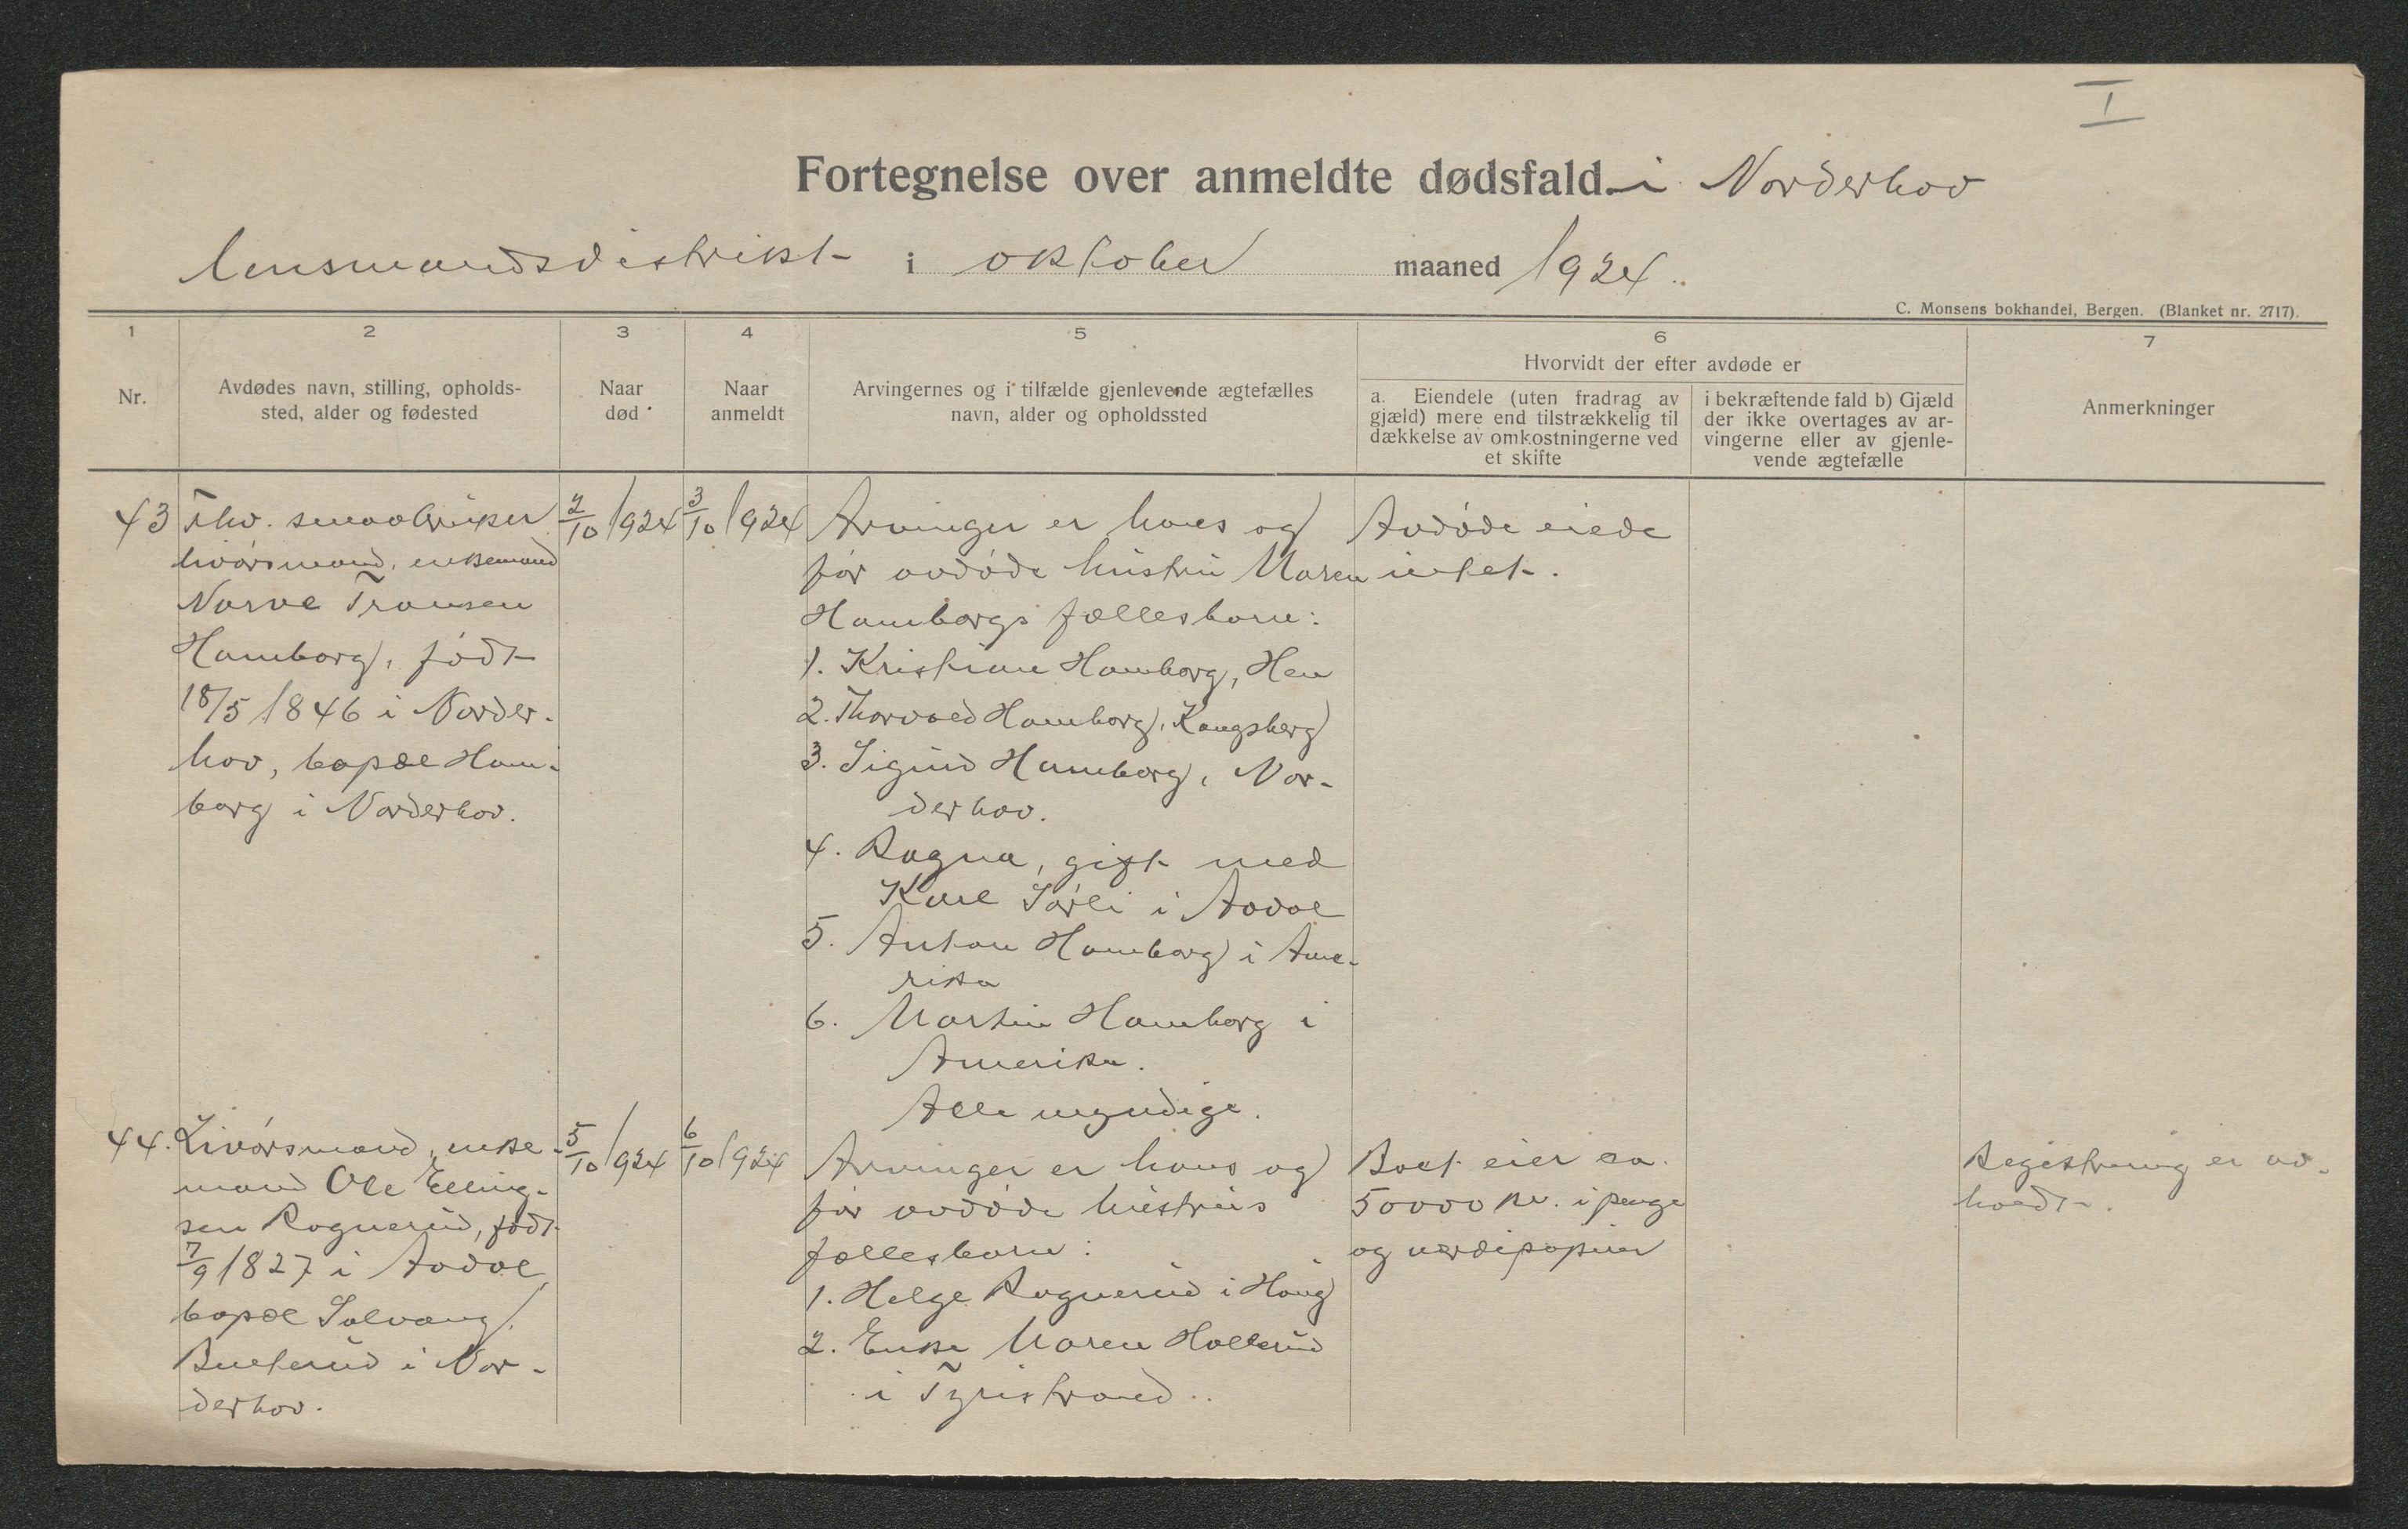 I
Fortegnelse over anmeldte dødsfald i Norderhov
lensmandsdistrikt i oktober maaned 1924.
C. Monsens bokhandel, Bergen. (Blanket nr. 2717).
1 2 3 4 5 6 7
Nr.
Avdødes navn, stilling, opholds-
sted, alder og fødested
Naar
død
Naar
anmeldt
Arvingernes og i tilfælde gjenlevende ægtefælles
navn, alder og opholdssted
Hvorvidt der efter avdøde er
a. Eiendele (uten fradrag av
gjæld) mere end tilstrækkelig til
dækkelse av omkostningerne ved
et skifte
i bekræftende fald b) Gjæld
der ikke overtages av ar-
vingerne eller av gjenle-
vende ægtefælle
Anmerkninger
43
Fhv. smaabruker
livørsmand, enkemand
Narve Transen
Hamborg, født
18/5 1846 i Norder-
hov, bopæl Ham-
borg i Norderhov.
2/10 1924
3/10 1924
Arvinger er hans og
før avdøde hustru Maren
Hamborgs fællesbarn:
1. Kristian Hamborg, Hen
2. Thorvald Hamborg, Kongsberg
3. Sigurd Hamborg, Nor-
derhov.
4. Ragna, gift med
Karl Sørli i Aadal
5. Anton Hamborg i Ame-
rika
6. Martin Hamborg i
Amerika.
Alle myndige.
Avdøde eiede
intet.
44.
Livørsmand, enke-
mand Ole Elling-
sen Ragnerud, født
7/9 1827 i Aadal,
bopæl Solvang,
Busterud i Nor-
derhov.
5/10 1924
6/10 1924
Arvinger er hans og
før avdøde hustrus
fællesbarn:
1. Helge Ragnerud i Haug
2. Enke Maren Hollerud
i Tyristrand.
Boet eier ca.
50000 kr. i penge
og værdipapirer
Registrering er av-
holdt.